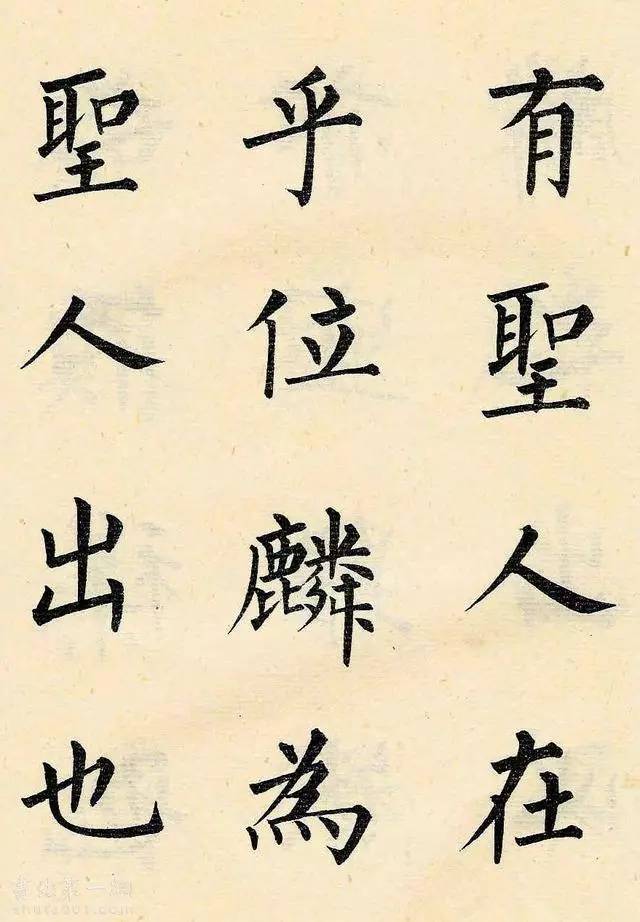 有聖人在
乎位麟為
聖人出也